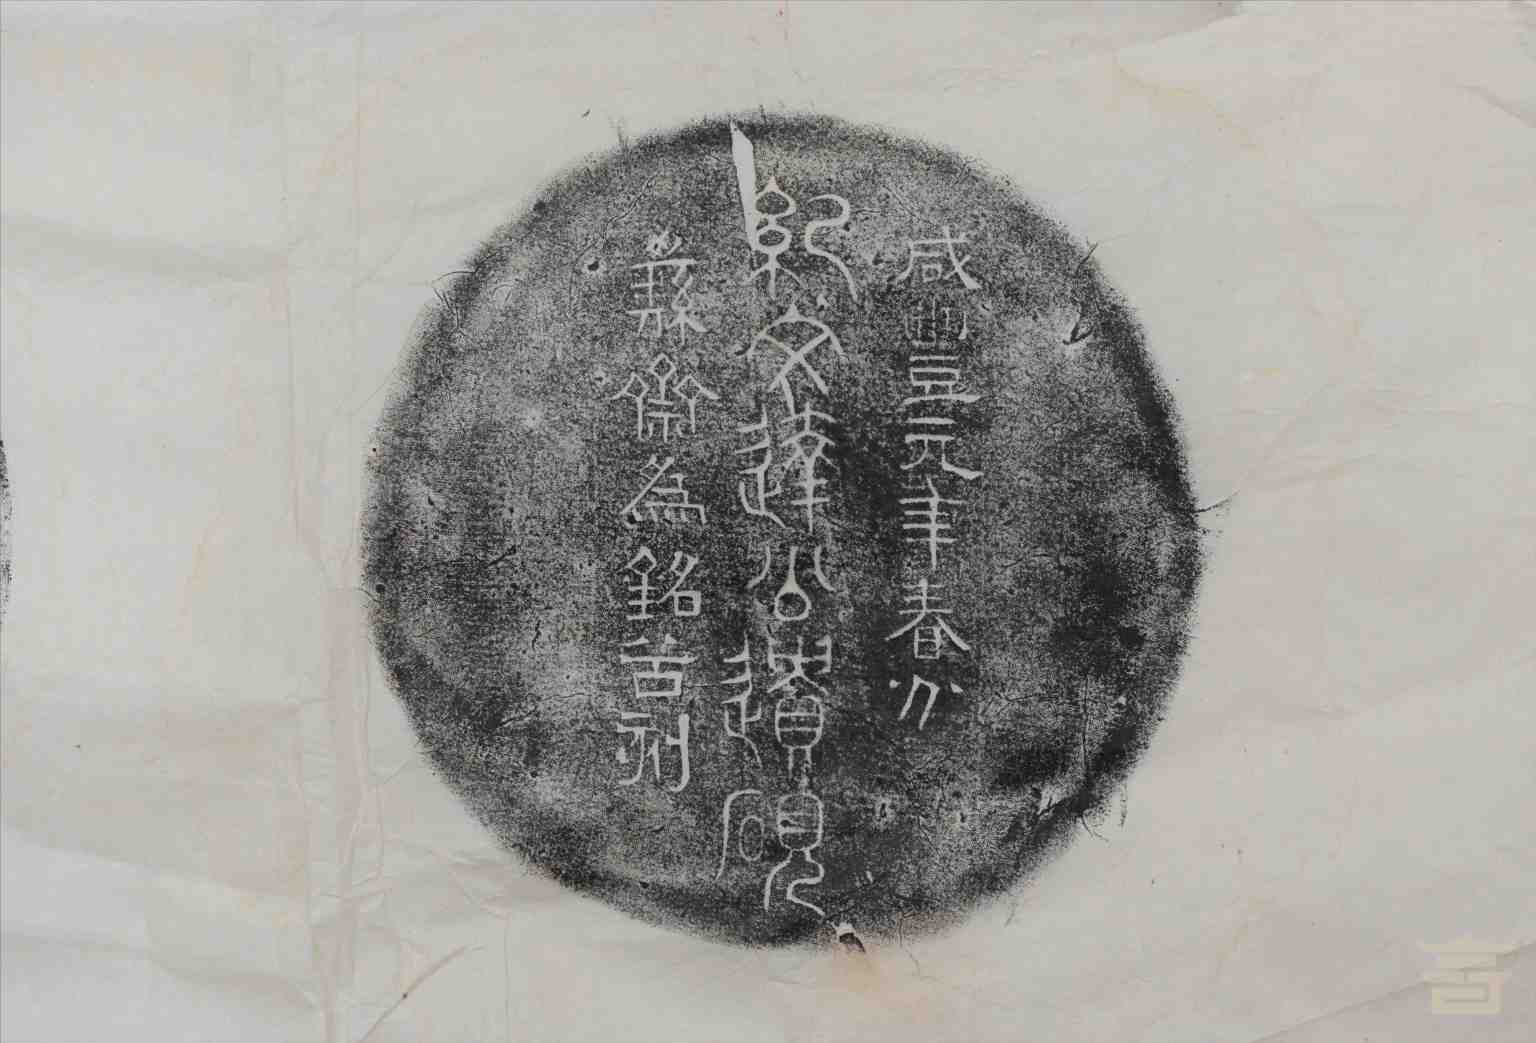 咸豐元年春分
紀文達公遺硯
彝齋為銘吉